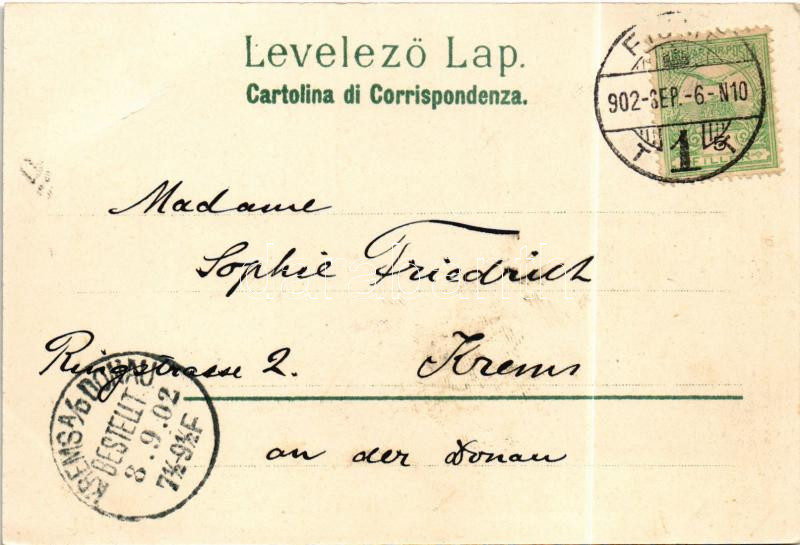 Levelező Lap.
Cartolina di Corrispondenza.
902-SEP.-6-N10
T T
1
5
FILLÉR
Madame
Sophie Friedrich
Ringstrasse 2. Krems
an der Donau
KREMS A/D DONAU
BESTELLT
8.9.02
7½-9½F